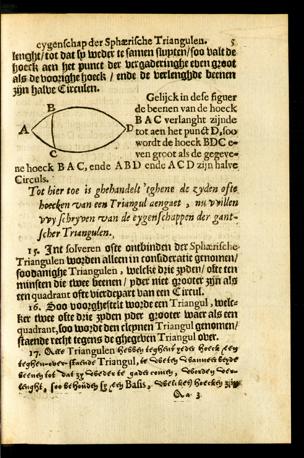 eygenschap der Sphærische Triangulen. 5
lenght/ tot dat sy weder te samen sluyten/ soo valt de
hoeck aen het punct der vergaderinghe even groot
als de voorighe hoeck / ende de verlenghde beenen
zijn halve Circulen.
Gelijck in dese figuer
de beenen van de hoeck
B A C verlanght zijnde
tot aen het punct D, soo
wordt de hoeck BDC e-
ven groot als de gegeve-
ne hoeck B A C, ende A B D ende A C D zijn halve
Circuls.
B
A
D
C
Tot hier toe is ghehandelt teghens de zyden ofte
hoecken van een Triangul aengaet , nu willen
wy schryven van de eygenschappen der gant-
scher Triangulen.
15. Int solveren ofte ontbinden der Sphærische
Triangulen worden alleen in consideratie genomen/
soodanighe Triangulen , welcke drie zyden/ ofte ten
minsten die twee beenen / yder niet grooter zijn als
een quadrant ofte vierdepart van een Circul.
16. Soo voorghestelt worde een Triangul , welc-
ker twee ofte drie zyden yder grooter waer als een
quadrant, soo wordt den cleynen Triangul genomen/
staende recht tegens de ghegeven Triangul over.
17. Alle Triangulen hebben teghens yeder hoeck een
teghen-over-staende Triangul, te weten wanneer beyde
beenen tot dat zy weder te gader comen, worden ver-
lenght, soo behouden sy een Basis, welckes hoecken zijn
A a 3